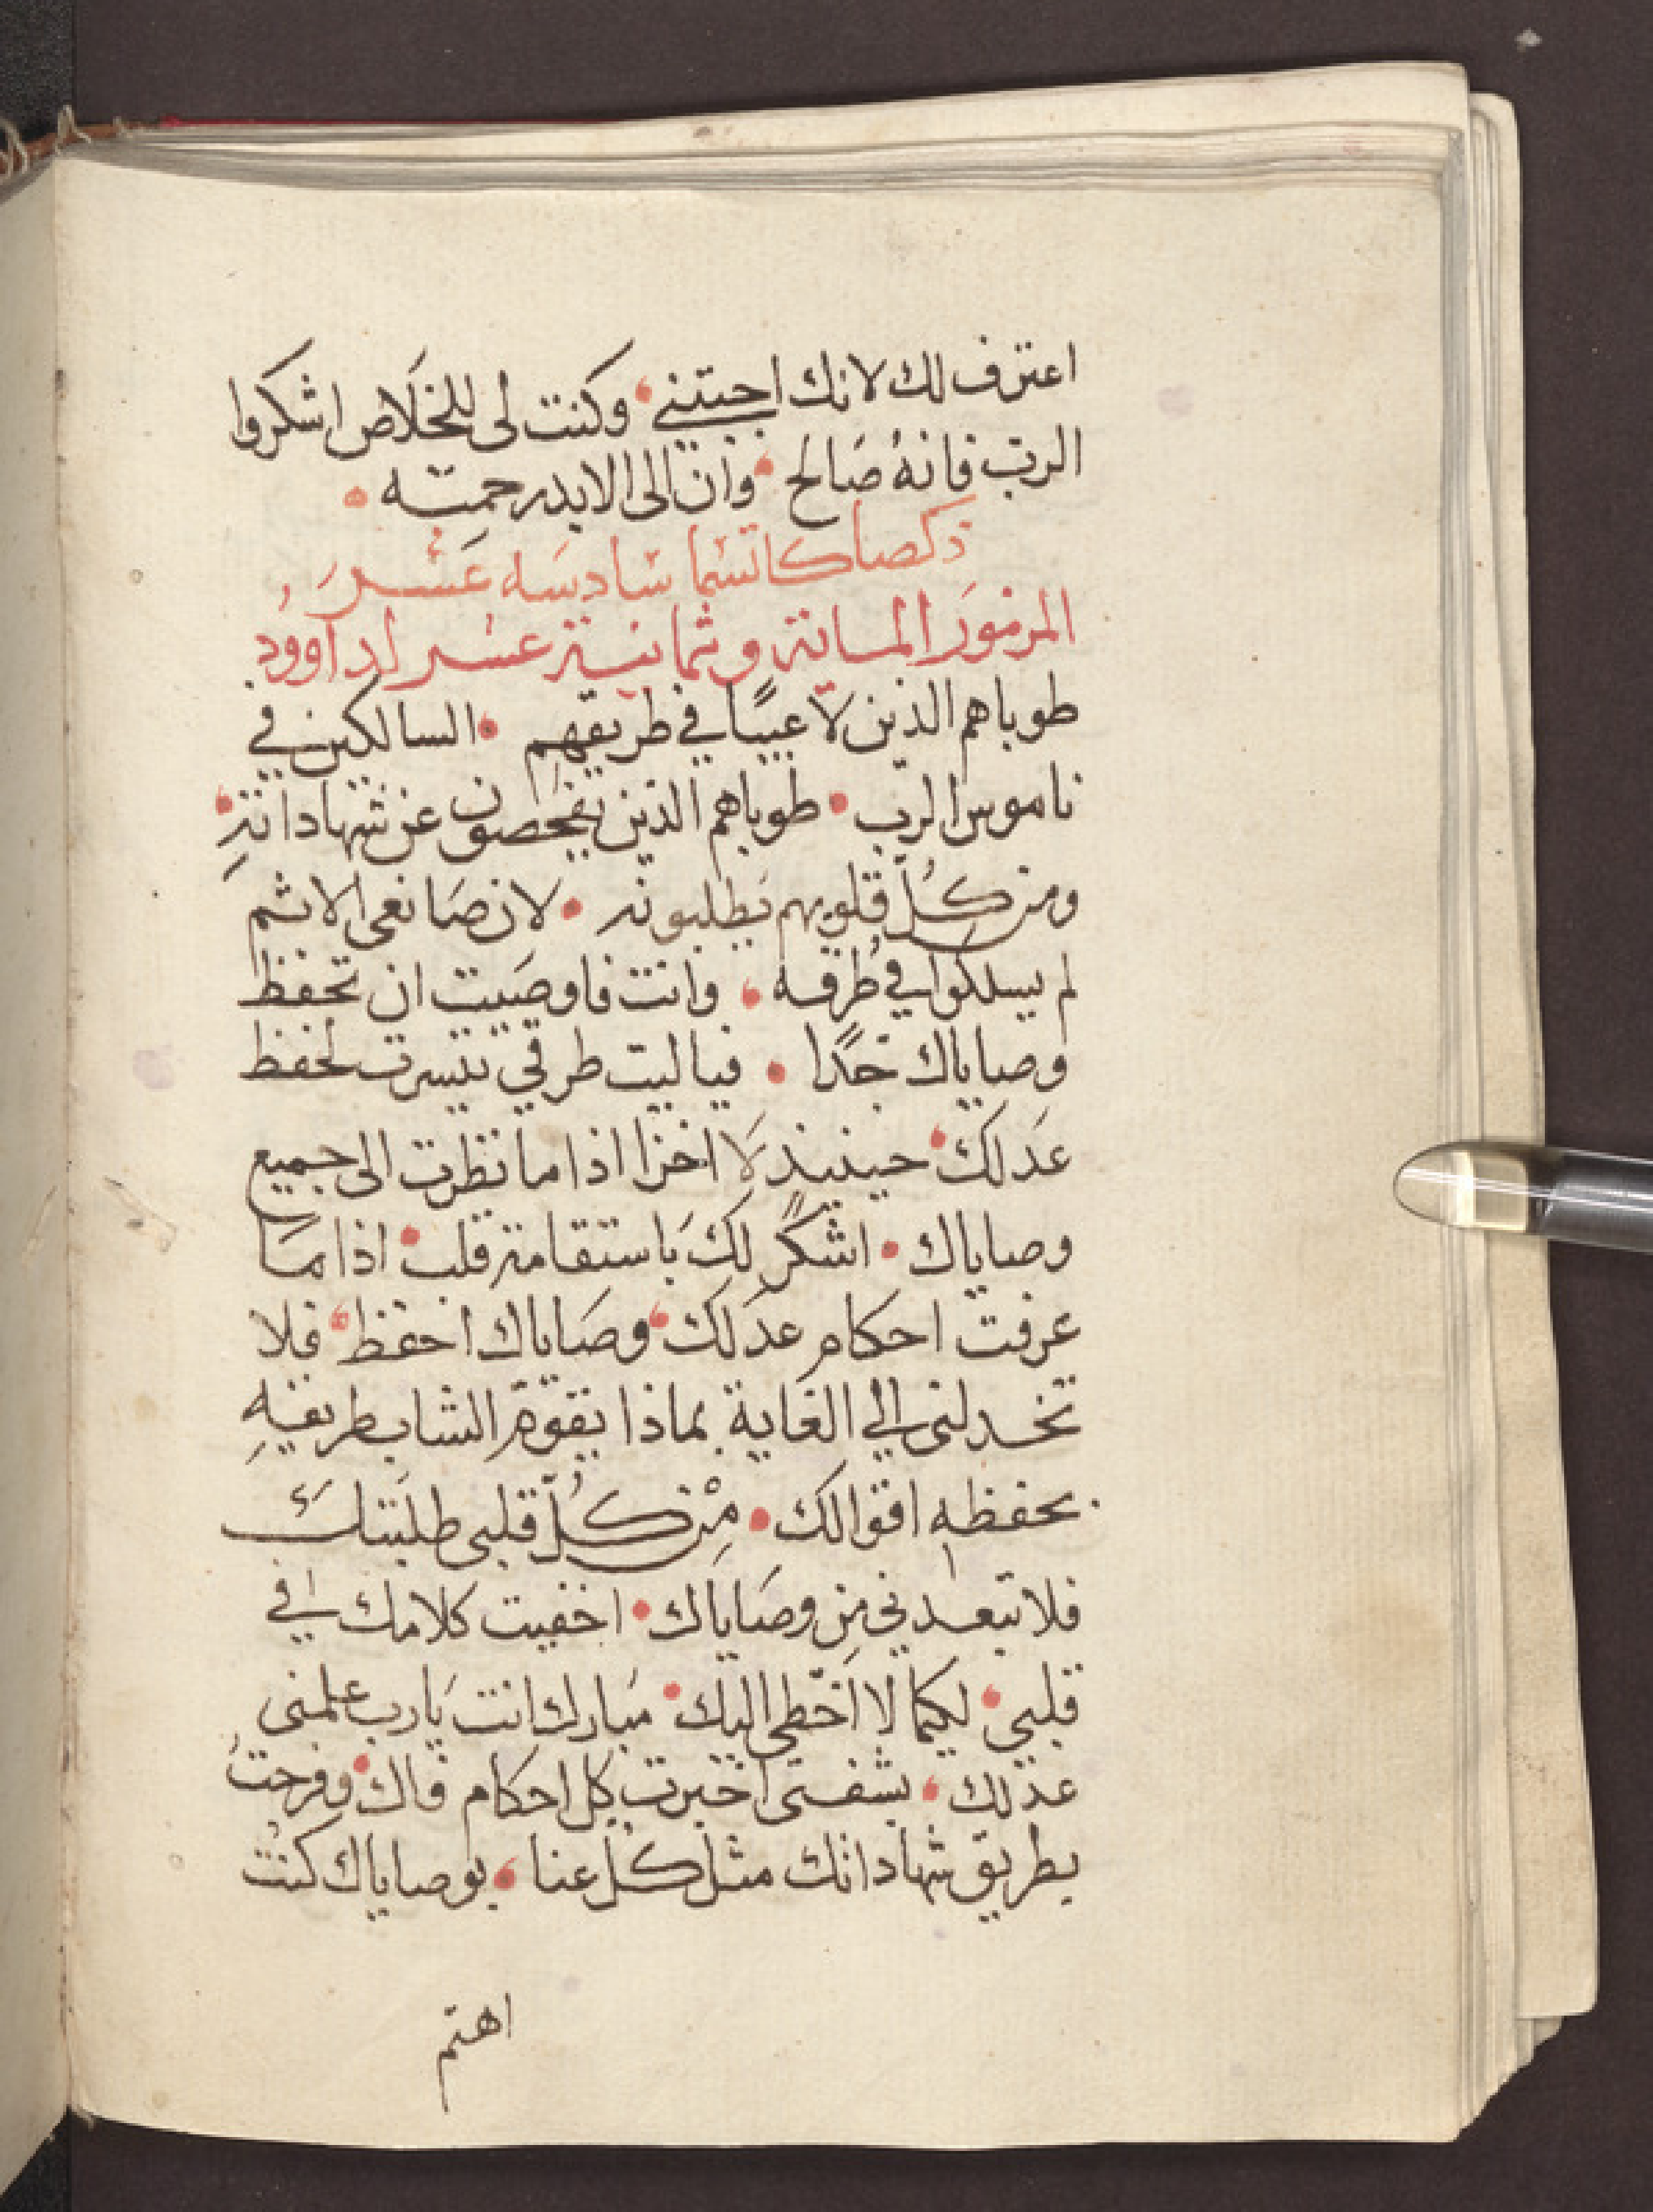 اعترف لك لانك اجبتني وكنت لى للخَلَاص اشكروا
الربّ فانهُ صَالح وان الى الابد رحمته
ذكصا كاتسما سادسَه عَشر
المزمور الماية وثمانية عشر لداوود
طوباهم الذين لا عيبًا في طريقهم السالكين في
ناموس الربّ طوباهم الذين يفحصون عن شهاداته
ومن كُلّ قلوبهم يَطلبونه لان صَانعى الاثم
لم يسلكوا في طُرقه وانت فاوصَيت ان تحفظ
وصاياك جدًا فياليت طرقي تتيسرت لحفظ
عَدلك حينيذ لَا اخزا اذا ما نظرت الى جميع
وصاياك اشكرُ لكَ باستقامة قلب اذا مَا
عرفت احكام عدَلك وصَاياك احفظ فلا
تخدلنى الي الغاية بماذا يقوّم الشاب طريقهِ
بحفظهِ اقوالك مِنْ كُلّ قلبي طلَبتك
فلا تبعدني مِن وصَاياك اخفيت كلامك في
قلبي لكيما لا اخّطى اليك مُبارك انت يَارب علمنى
عدلك بشفتى اخبرت كل احكام فاك وفرحتُ
بطريق شهاداتك مثل كل غنا بوصاياك كنتُ
اهتم